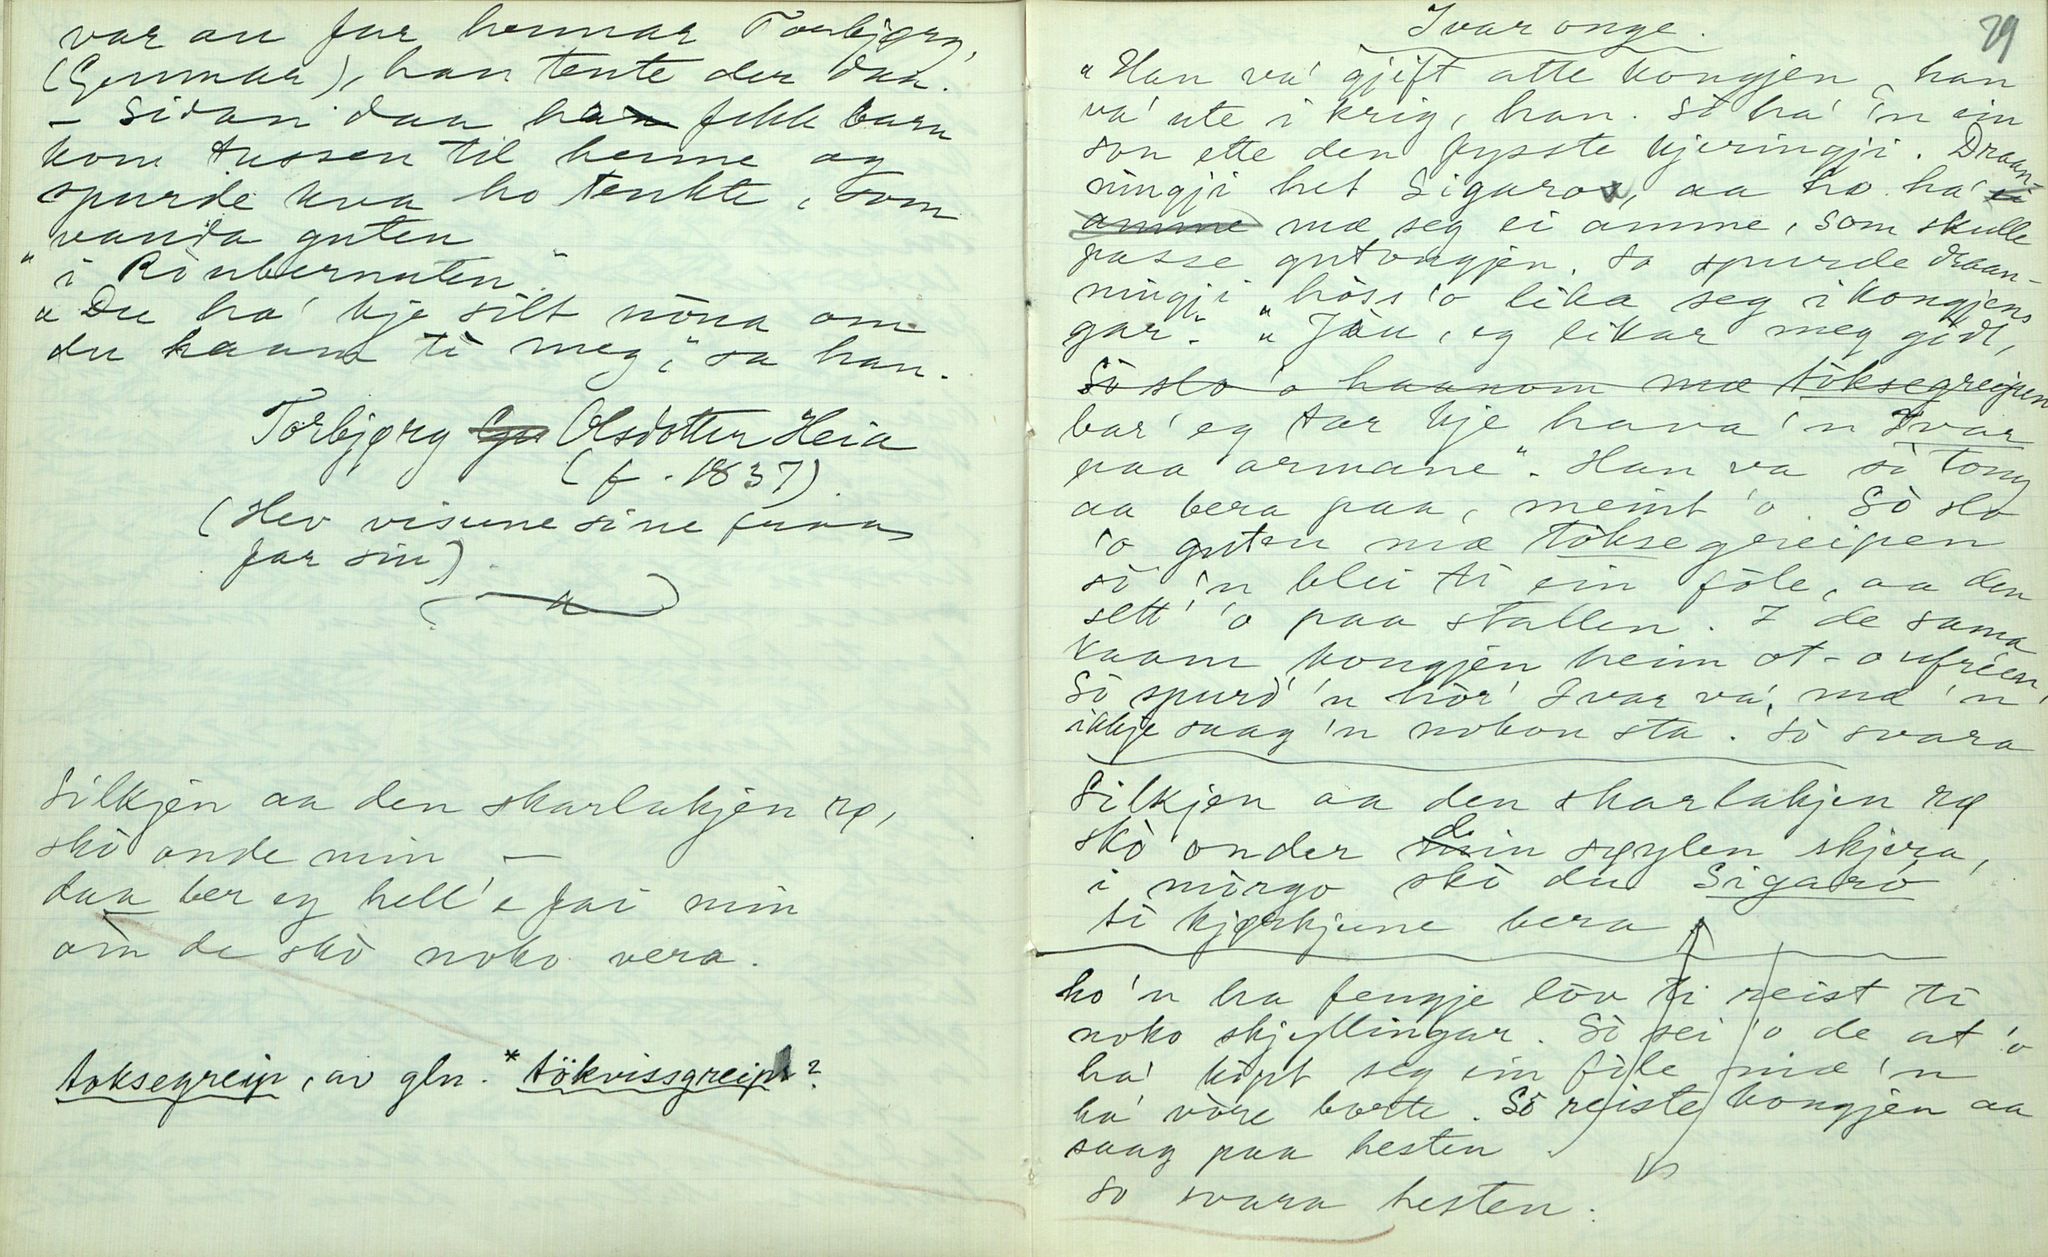 var au far hennar Torbjørg,
(Gunnar), han tente der daa.
– Sidan daa han fekk barn
kom tussen til henne og
spurde kva ho tenkte, som
vanda guten
"i Rinbernuten"
"Du ha' kje silt nòna om
du kaam ti meg", sa han.
Torbjørg Gu Olsdotter Heia
(f. 1837).
(Hev visune sine fraa
far sin).
Silkjen aa den skarlakjen rø,
skò onde min –
daa ber eg hell'e fai min
òm de skò noko vera.
toksegreip, av gln. *tökvissgreip?
29
Ivar onge.
"Han va' gjift atte kongjen, han
va' ute i krig, han. Sò ha' 'n ein
son ette den fysste kjeringji. Draan-
ningji het Sigaro, aa ho ha' ei
amme mæ seg ei amme, som skulle
passe gutongjen. So spurde draan-
ningji "hòss 'o lika seg i kongjens
gar". "Jau, eg likar meg gødt,
Sò slo 'o haanom mæ tòksegreipen
bar' eg tar kje hava 'n Ivar
paa armane". Han va sò tong
aa bera paa, meint 'o. Sò slo
'o guten mæ tòksegreipen
sò 'n blei ti ein fòle, aa den
sett' 'o paa stallen. I de sama
kaam kongjen heim ot-oufreen'
Sò spurd' 'n hòr' Ivar va', mæ 'n
ikkje saag 'n nokon sta. Sò svara
Silkjen aa den skarlakjen rø
skò onder din søylen skjera,
i mòrgo skò du Sigarò
ti kjørkjune bera
ho 'n ha fengje lòv ti reist ti
noko skjyllingar. Sò sei 'o de at 'o
ha' kjøpt seg ein fòle mæ 'n
ha' vòre borte. Sò reiste kongjen aa
saag paa hesten
so svara hesten: